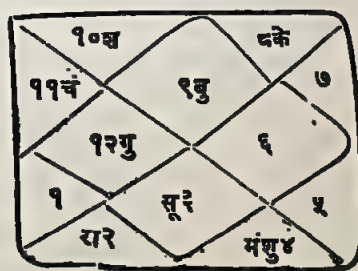 १०श ८के
११चं ९बु ७
१२गु ६
१ सू३ ५
रा२ मंशु४